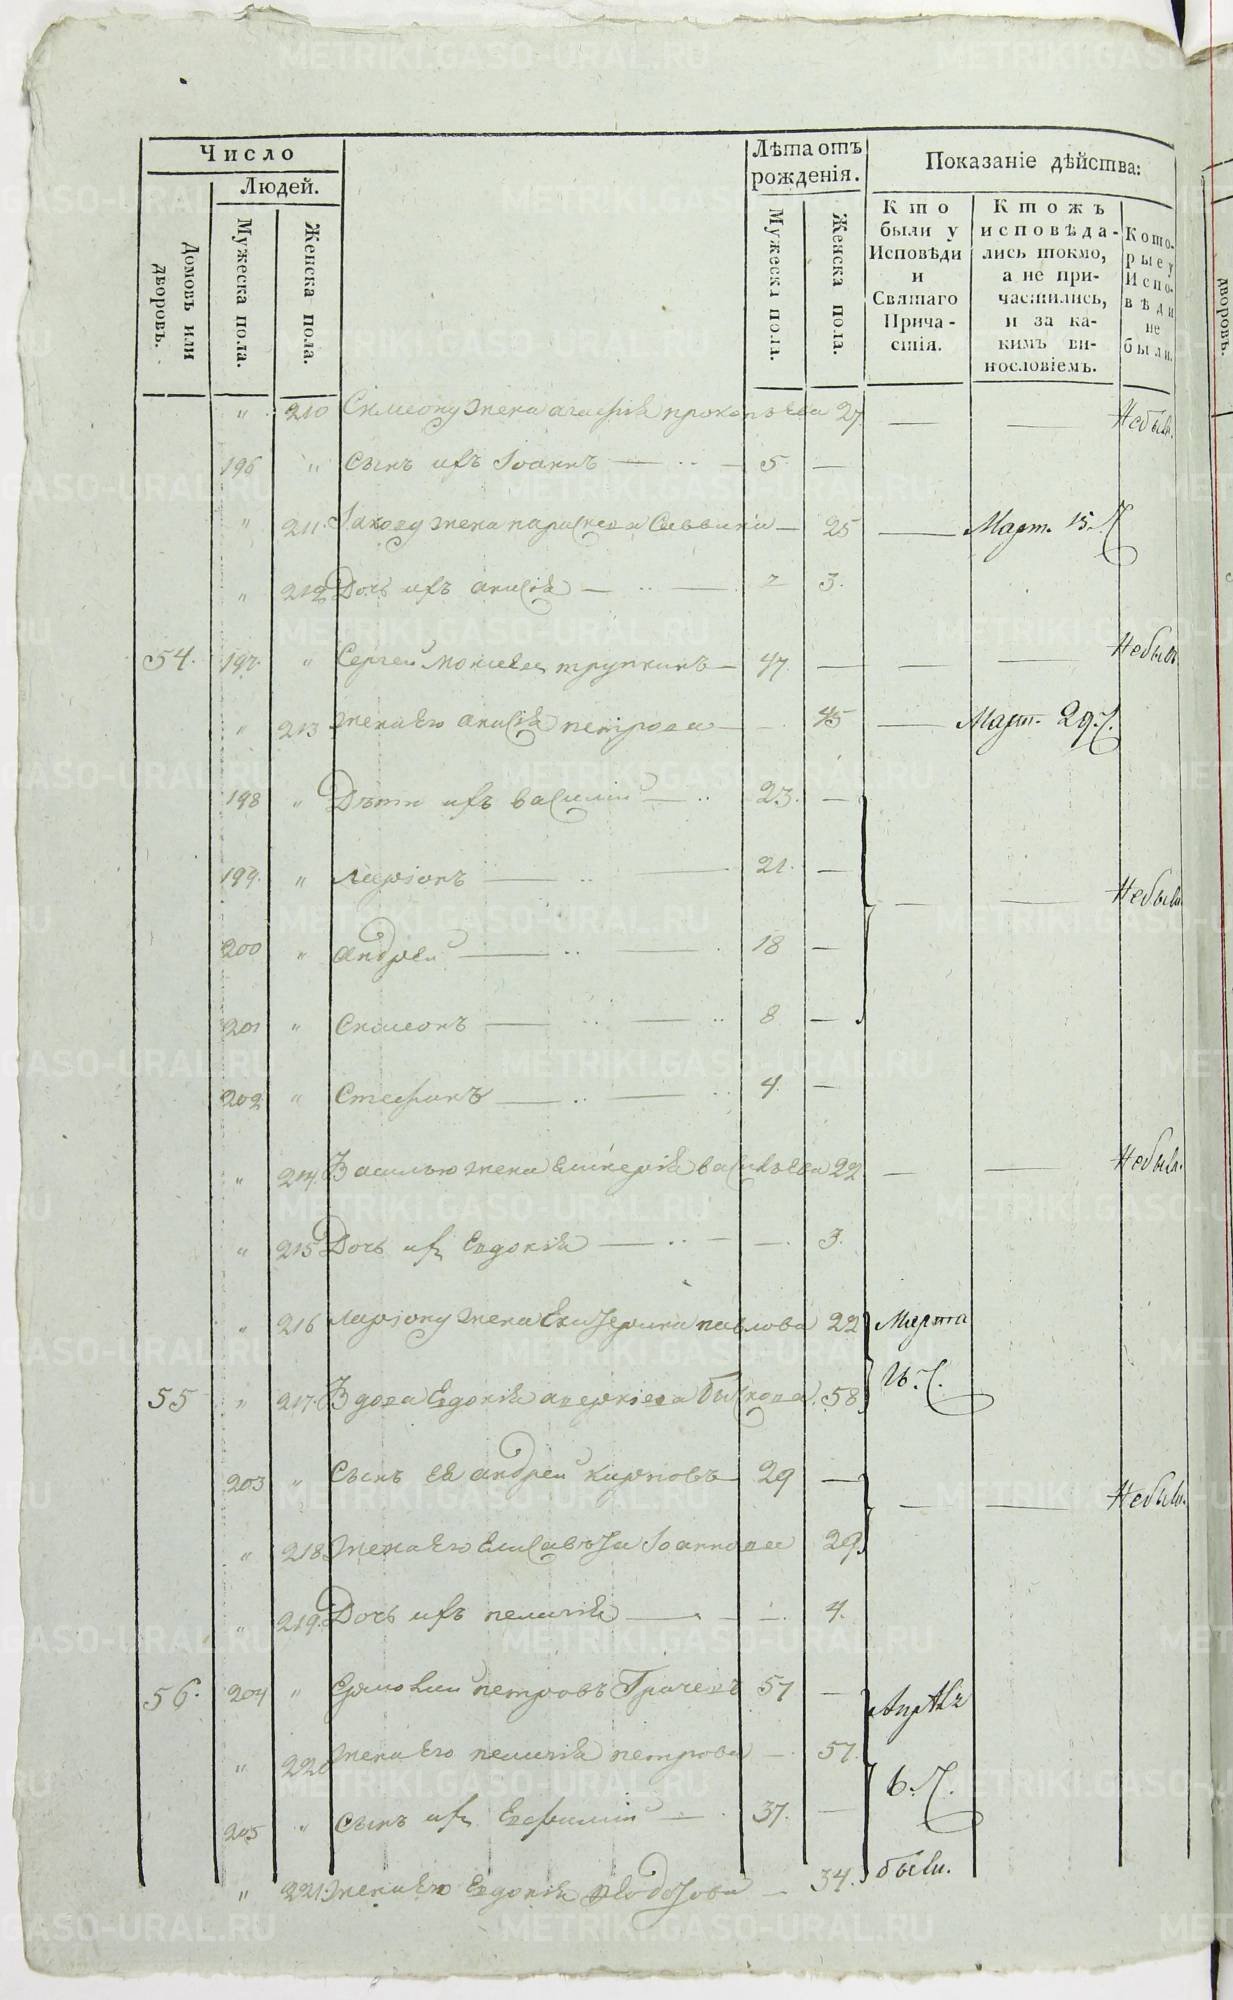 Число
Людей.
Домовъ или дворовъ.
Мужеска пола.
Женска пола.
Лѣта отъ рожденія.
Мужеска пола.
Женска пола.
Показаніе дѣйства:
Кто были у Исповѣди и Святаго Причастія.
Ктожъ исповѣдались токмо, а не причастились, и за какимъ винословіемъ.
Которые у Исповѣди не были.
" 210 Симеону жена агафія прокопьева 27 — — Небыла.
196 " Сынъ ихъ Іоаннъ — 5 —
" 211 Іакову жена параскева Саввина — 25 — Март. 15. Ч
" 212 Дочь ихъ анисія — 3.
54. 197. " Сергей Моисеевъ трупкинъ — 47. — — — Небылъ
" 213 жена Его анисія петрова — 45 — Март. 29. Ч.
198 " Дѣти ихъ василии — 23. —
199. " Ларіонъ — 21. — — — Небыли
200 " андреи — 18 —
201 " Симеонъ — 8 —
202 " Стефанъ — 4. —
" 214. Василью жена васильева 22 — — Небыла.
" 215 Дочь ихъ Евдокія — 3.
" 216 Ларіону жена Екатерина павлова 22 Марта
55 " 217. Вдова Евдокія аверкіева 58 Ч.
203 " Сынъ Ея андреи карповъ 29 — — — Небыли.
" 218 жена Его Елисавета Іоаннова 29
" 219. Дочь ихъ пелагія — 4.
56. 204 " петровъ Грачевъ 57 — Апрѣля
" 220 жена Его пелагія петрова — 57. 6. Ч.
205 " Сынъ ихъ Евфимии — 37. —
" 221. жена Его Евдокія Ѳеодотова — 34. были.
METRIKI.GASO-URAL.RU